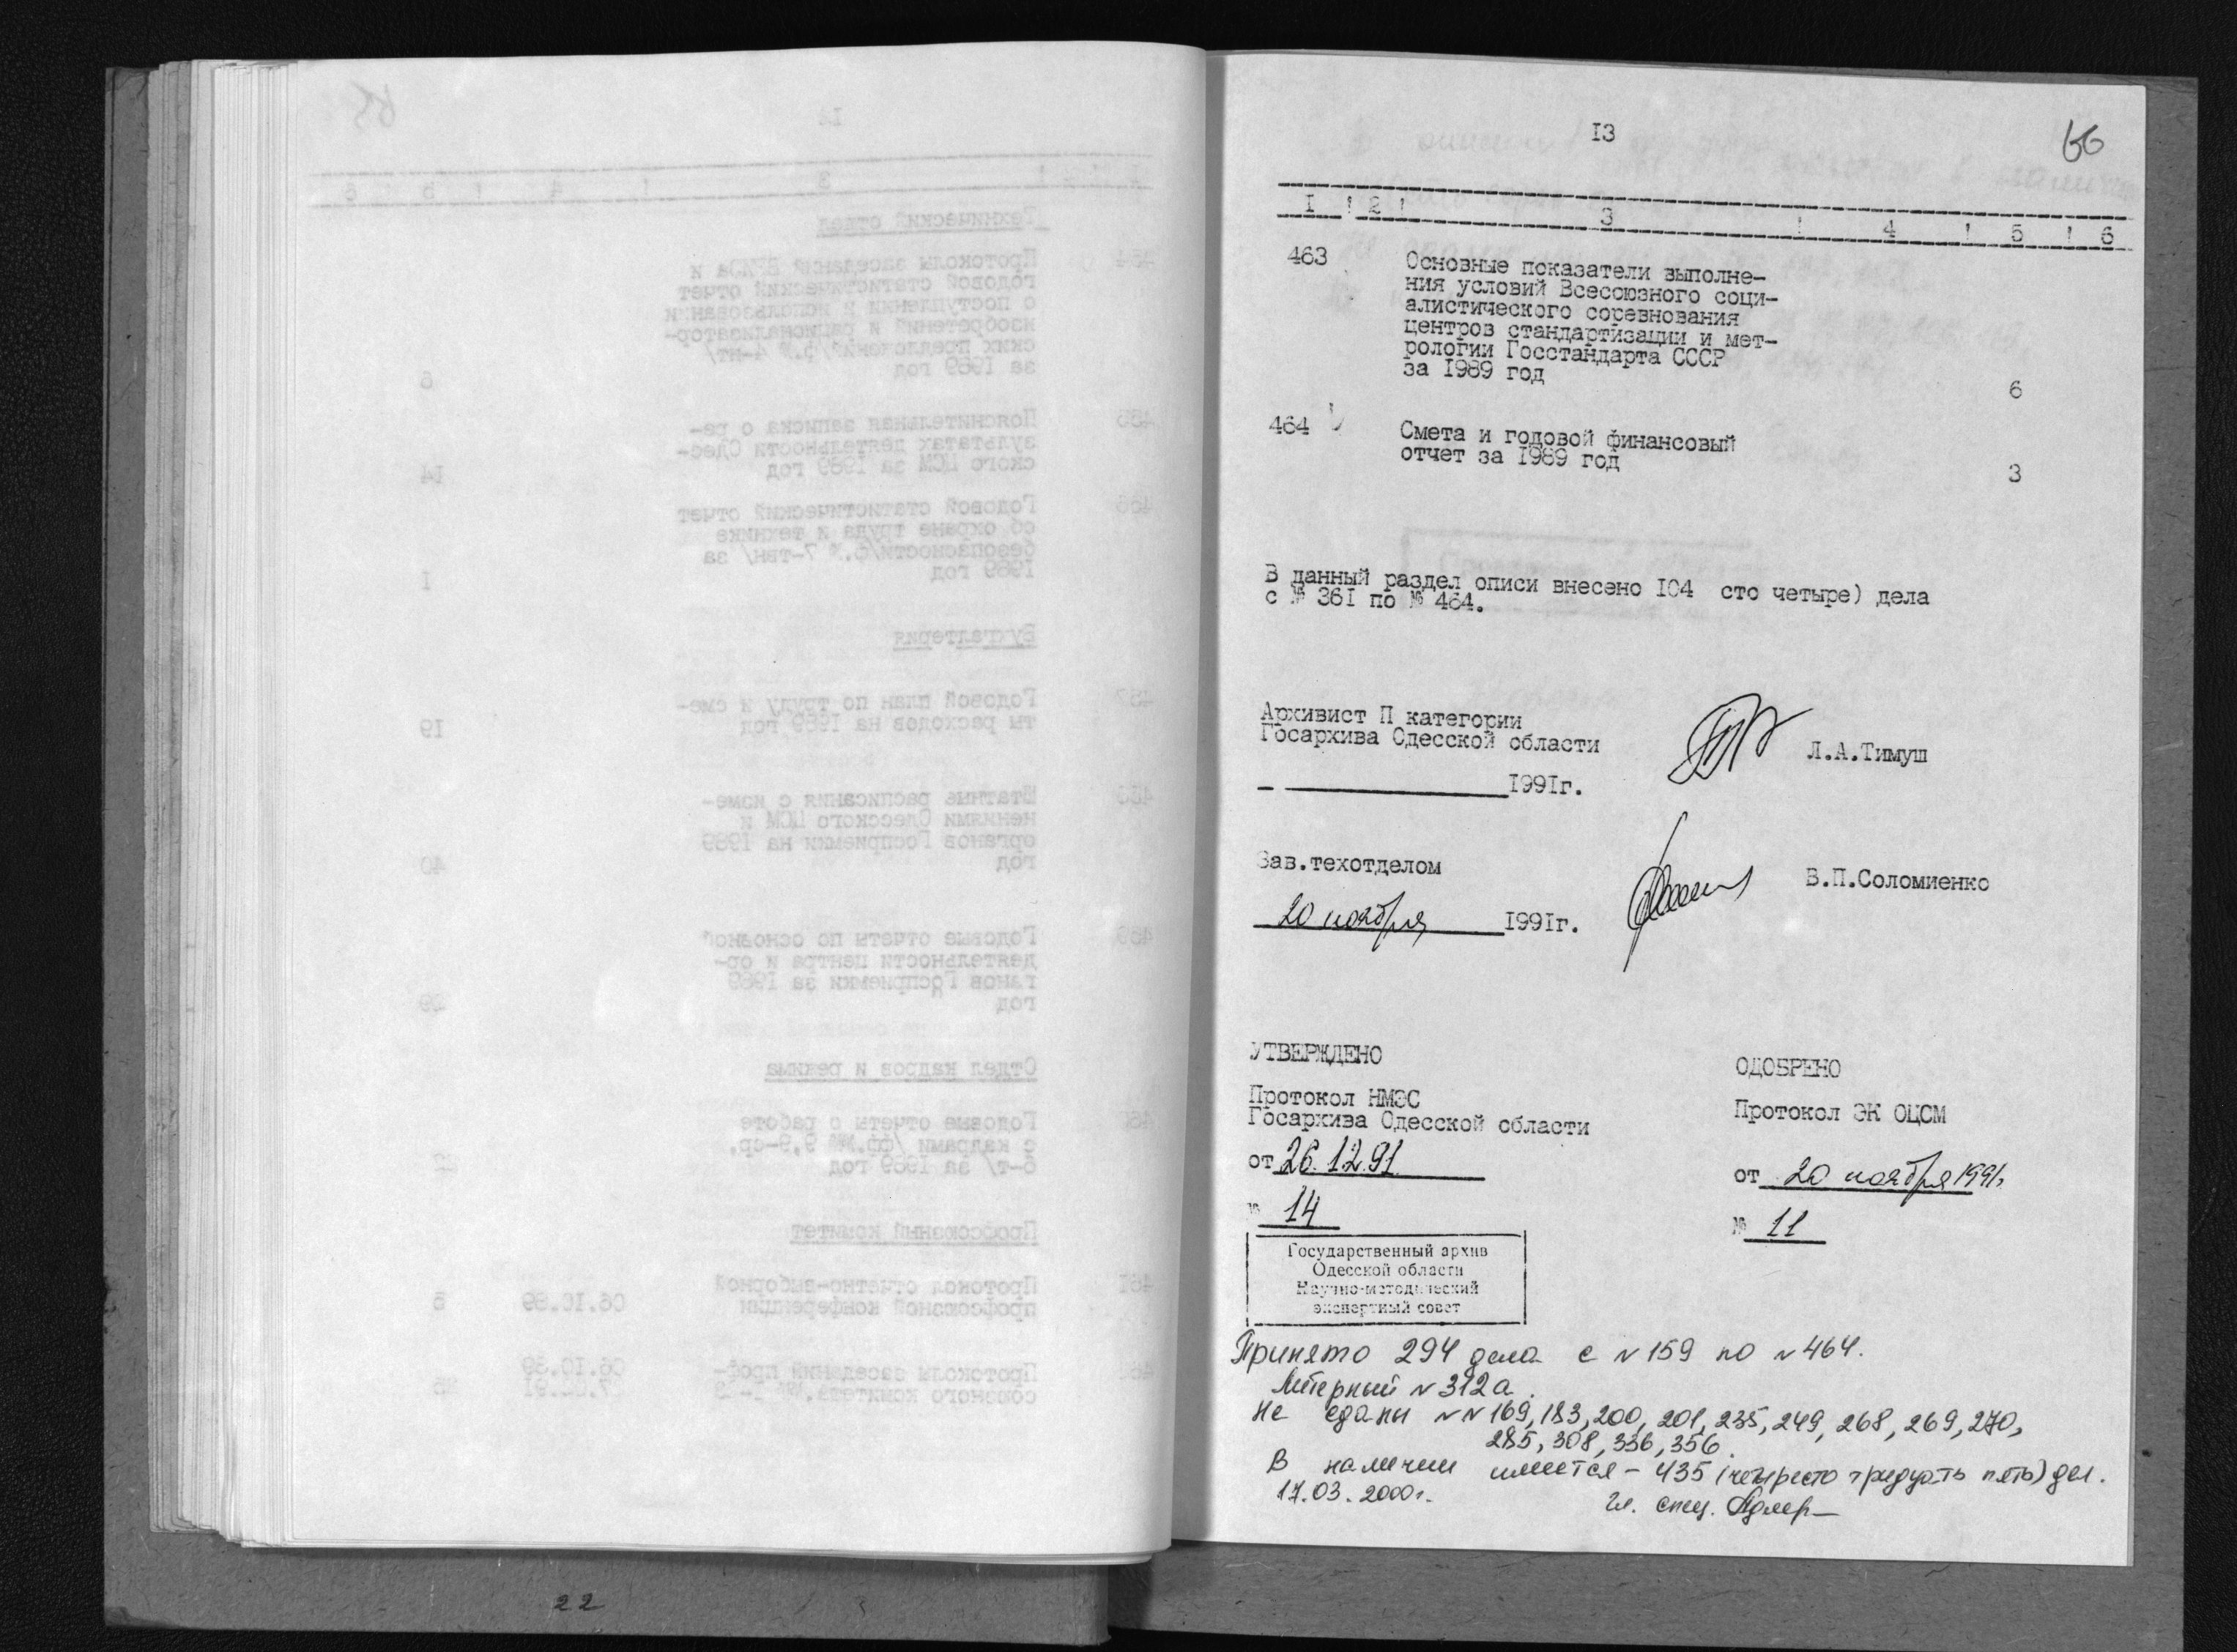 13
66
I ! 2 ! 3 ! 4 ! 5 ! 6
463
Основные показатели выполне-
ния условий Всесоюзного соци-
алистического соревнования
центров стандартизации и мет-
рологии Госстандарта СССР
за 1989 год
6
464
Смета и годовой финансовый
отчет за 1989 год
3
В данный раздел описи внесено 104 сто четыре) дела
с № 361 по № 464.
Архивист П категории
Госархива Одесской области
Л.А.Тимуш
1991г.
Зав.техотделом
В.П.Соломиенко
20 ноября 1991г.
УТВЕРЖДЕНО
Протокол НМЭС
Госархива Одесской области
от 26.12.91.
№ 14
ОДОБРЕНО
Протокол ЭК ОЦСМ
от 20 ноября 1991г.
№ 11
Государственный архив
Одесской области
Научно-методический
экспертный совет
Принято 294 дела с №159 по №464.
Литерный №312а.
Не сданы №№169,183,200,201,235,249,268,269,270,
285,308,336,356.
В наличии имеется - 435 (четыреста тридцать пять) дел.
17.03.2000г.
Гл. спец.
22